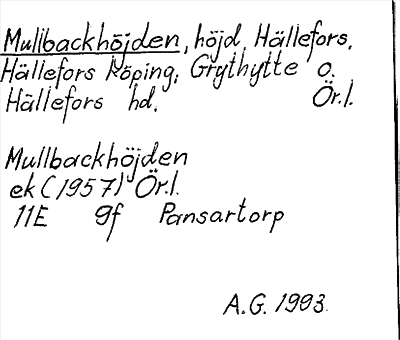 Mullbackhöjden, höjd, Hällefors,
Hällefors köping, Grythytte o.
Hällefors hd. Ör.l.
Mullbackhöjden
ek (1957) Ör.l.
11E 9f Pansartorp
A.G. 1993.